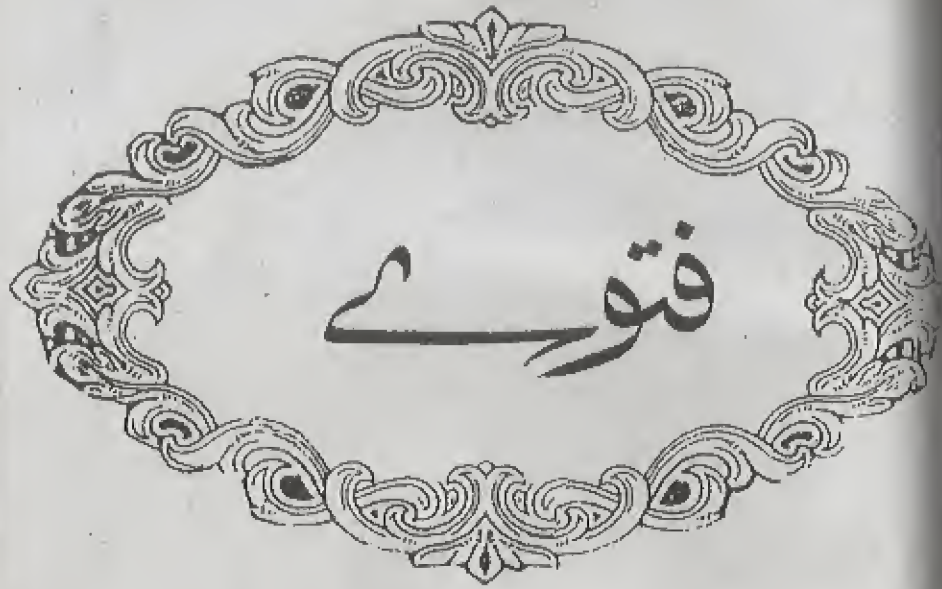 فتوے